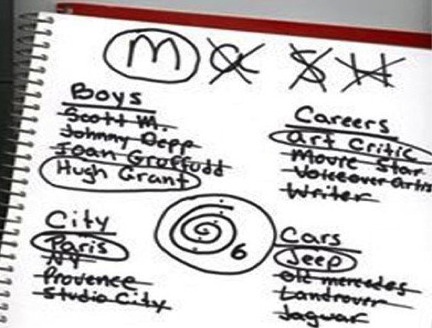 M A S H
Boys
Scott M.
Johnny Depp
Ioan Gruffudd
Hugh Grant
Careers
Art Critic
Movie Star
Voiceover Artis
Writer
City
Paris
NY
Provence
Studio City
6
Cars
Jeep
Old mercedes
Landrover
Jaguar